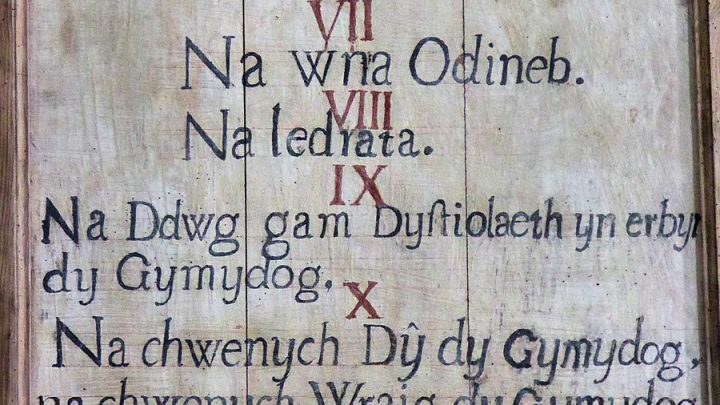 VII
Na wna Odineb.
VIII
Na ledrata.
IX
Na Ddwg gam Dyſtiolaeth yn erbyn
dy Gymydog.
X
Na chwenych Dŷ dy Gymydog,
na chwenych Wraig dy Gymydog